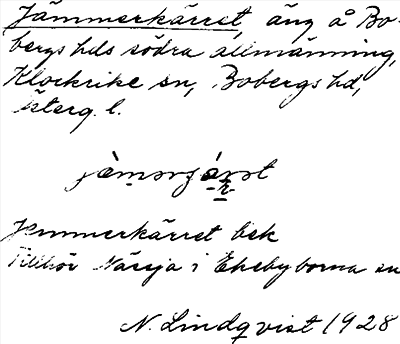 Jämmerkärret, äng å Bo-
bergs hds södra allmänning,
Klockrike sn, Bobergs hd,
Österg. l.
Jemmerkärret bek
Tillhör Närsja i Ekebyborna sn
N. Lindqvist 1928